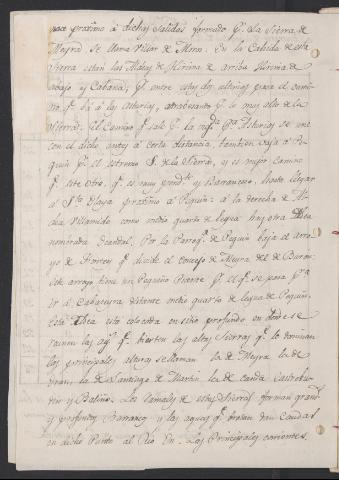 poco proximo à dichas salidas formado pr. la Sierra de
Meyra se llama Villar de Mrn. En la Cahida de esta
Sierra estan las Matas de Heriña de arriba Heriña de
abajo y Cabana; pr. entre estas dos alturas pasa el cami-
no qe. bà à las Asturias, atrabesando pr. lo mas alto de la
Sierra. El Camino qe. sale pr. la pa. Asturias se une
con el dicho antes à corta distancia, tambien vaja à Pe-
quin pr. el estremo S. de la Sierra, y es mejor camino
qe. este otro, qe. es muy pendte. y Barrancoso, hasta llegar
à Sta. Eulaya proximo al Piquin: à la derecha de
Villamide como medio quarto de legua hay otra Aldea
nombrada Acendal. Por la Parroqa. de Pequin baja el arro-
yo de qe. divide el Concejo de Meyra del de Buron.
este arroyo tiene un Pequeño Puente pr. el qe. se pasa pa.
ir à Cabaceyra distante medio quarto de legua de Pequin.
Esta Aldea está colocada en sitio profundo en donde se
reunen las ags. qe. bierten las altas Sierras qe. lo dominan
las principales alturas se llaman la de Meyra la de
la de Santiago de Martin la de Canda Castrobu-
rin y Baliño. Los Ramales de estas Sierras forman grans.
y profundos Barrancs. y las aguas qe. brotan dan Caudal
en dicho Punto al Rio Eo. Los Principales corrientes.